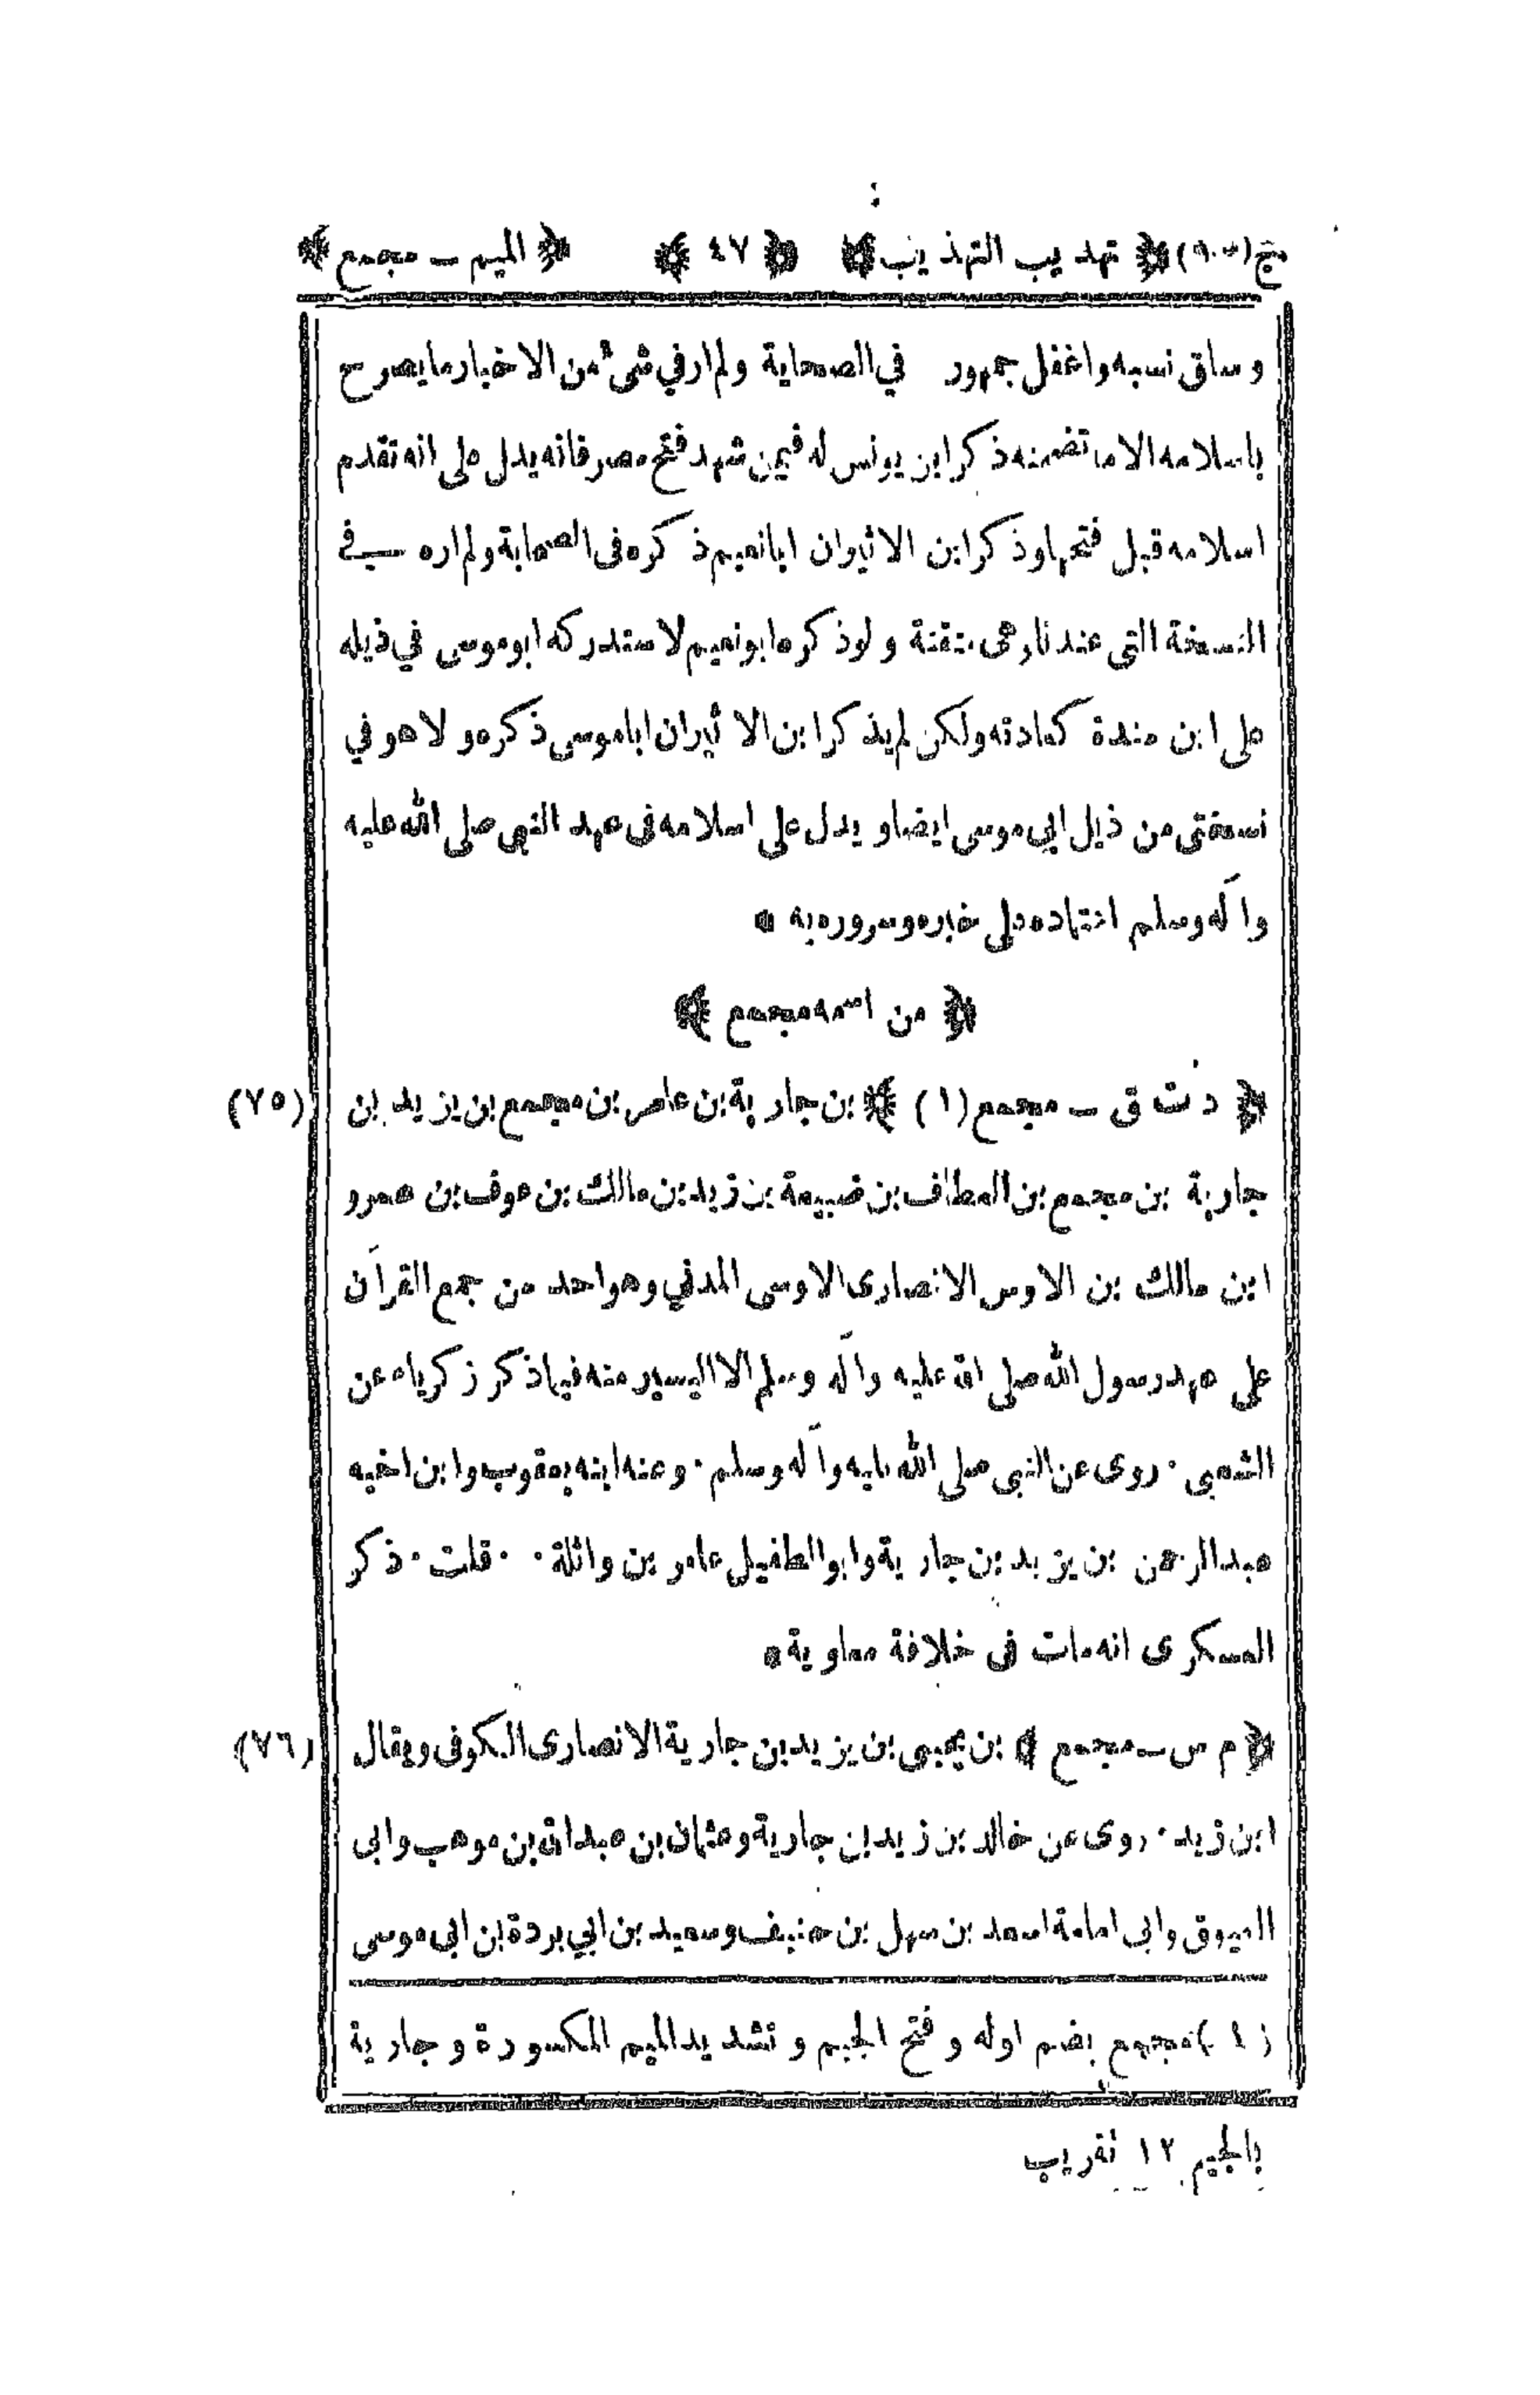 ج (١٠) ﴿ تهذيب التهذيب ﴾ ﴿ ٤٧ ﴾ ﴿ الميم ــ مجمع ﴾
وساق نسبه واغفل جمهور في الصحابة ولم ار في شئ من الاخبار ما يصرح
باسلامه الا ما تضمنه ذكر ابن يونس له فيمن شهد فتح مصر فانه يدل على انه تقدم
اسلامه قبل فتحها وذكر ابن الاثيران ابا نعيم ذكره فى الصحابة ولم اره في
النسخة التى عندنا وهى متقنة ولو ذكره ابو نعيم لاستدركه ابو موسى في ذيله
على ابن مندة كعادته ولكن لم يذكر ابن الاثيران ابا موسى ذكره ولا هو في
نسختى من ذيل ابي موسى ايضا ويدل على اسلامه فى عهد النبي صلى الله عليه
وآله وسلم اعتماده على خبره وسروره به *
﴿ من اسمه مجمع ﴾
(٧٥) ﴿ د ت ق ــ مجمع (١) ﴾ بن جارية بن عامر بن مجمع بن يزيد بن
جارية بن مجمع بن العطاف بن ضبيعة بن زيد بن مالك بن عوف بن عمرو
ابن مالك بن الاوس الانصارى الاوسى المدني وهو احد من جمع القرآن
على عهد رسول الله صلى الله عليه وآله وسلم الا اليسير منه فيما ذكر زكرياء عن
الشعبى ٠ روى عن النبى صلى الله عليه وآله وسلم ٠ وعنه ابنه يعقوب وابن اخيه
عبد الرحمن بن يزيد بن جارية وابو الطفيل عامر بن واثلة ٠ ٠ قلت ٠ ذكر
العسكرى انه مات فى خلافة معاوية *
(٧٦) ﴿ م س ــ مجمع ﴾ بن يحيى بن يزيد بن جارية الانصارى الكوفى ويقال
ابن زيد ٠ روى عن خالد بن زيد بن جارية وعثمان بن عبد الله بن موهب وابى
العيوق وابى امامة اسعد بن سهل بن حنيف وسعيد بن ابي بردة بن ابى موسى
(١) مجمع بضم اوله وفتح الجيم وتشديد الميم المكسورة وجارية
بالجيم ١٢ تقريب